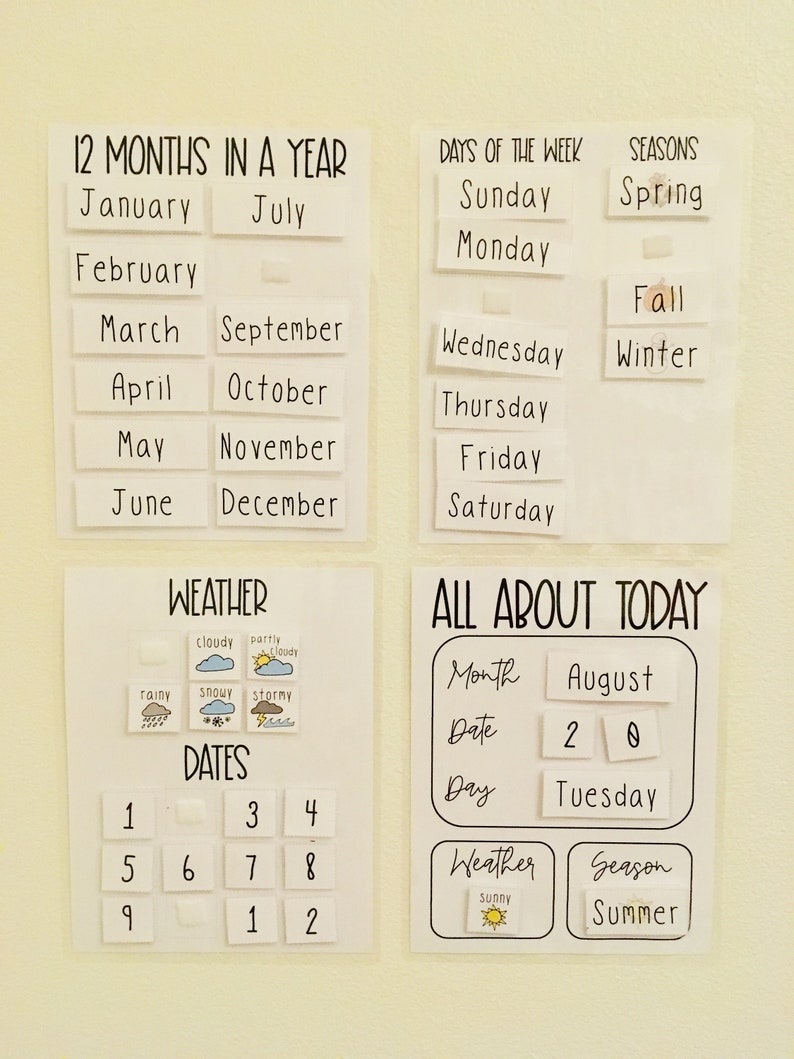 12 MONTHS IN A YEAR
January July
February
March September
April October
May November
June December
DAYS OF THE WEEK
Sunday
Monday
Wednesday
Thursday
Friday
Saturday
SEASONS
Spring
Fall
Winter
WEATHER
cloudy partly cloudy
rainy snowy stormy
DATES
1 3 4
5 6 7 8
9 1 2
ALL ABOUT TODAY
Month August
Date 2 0
Day Tuesday
Weather
sunny
Season
Summer